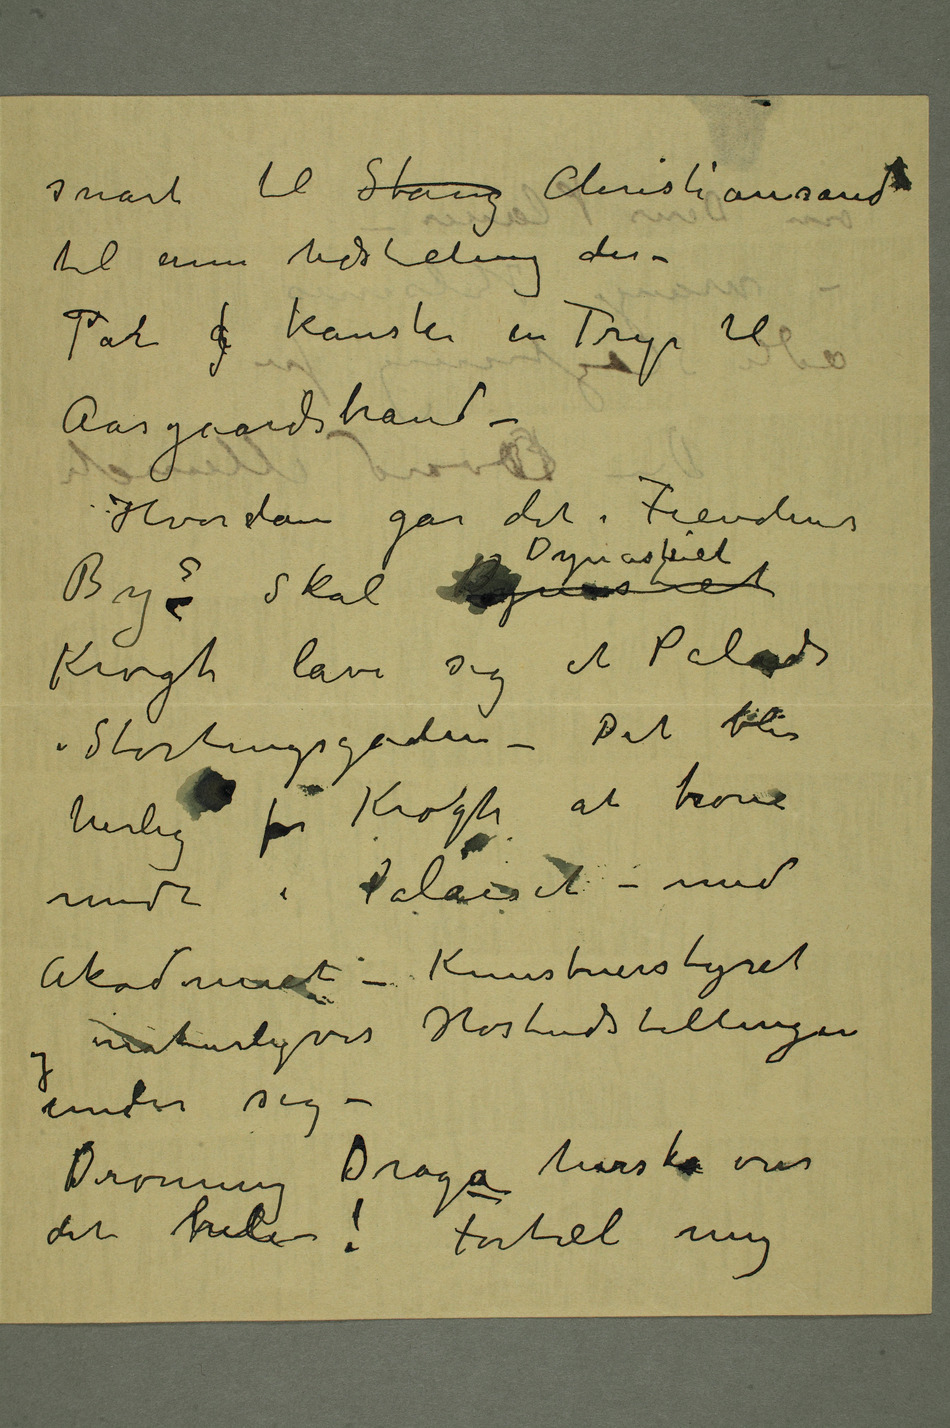 snart til Stang Christiansand
til min Udstilling der –
Tar J kanske en Trip til
Aasgaardstrand –
Hvordan går det i Fiendens
By? Skal Dynastiet
Krogh lave sig et Palads
i Stortingsgaden – Det blir
herlig for Krogh at trone
midt i Palaiset – med
Akademiet – Kunstnerstyret
og naturligvis Høstudstillingen
under sig –
Dronning Draga herske over
det hele! Fortæl mig